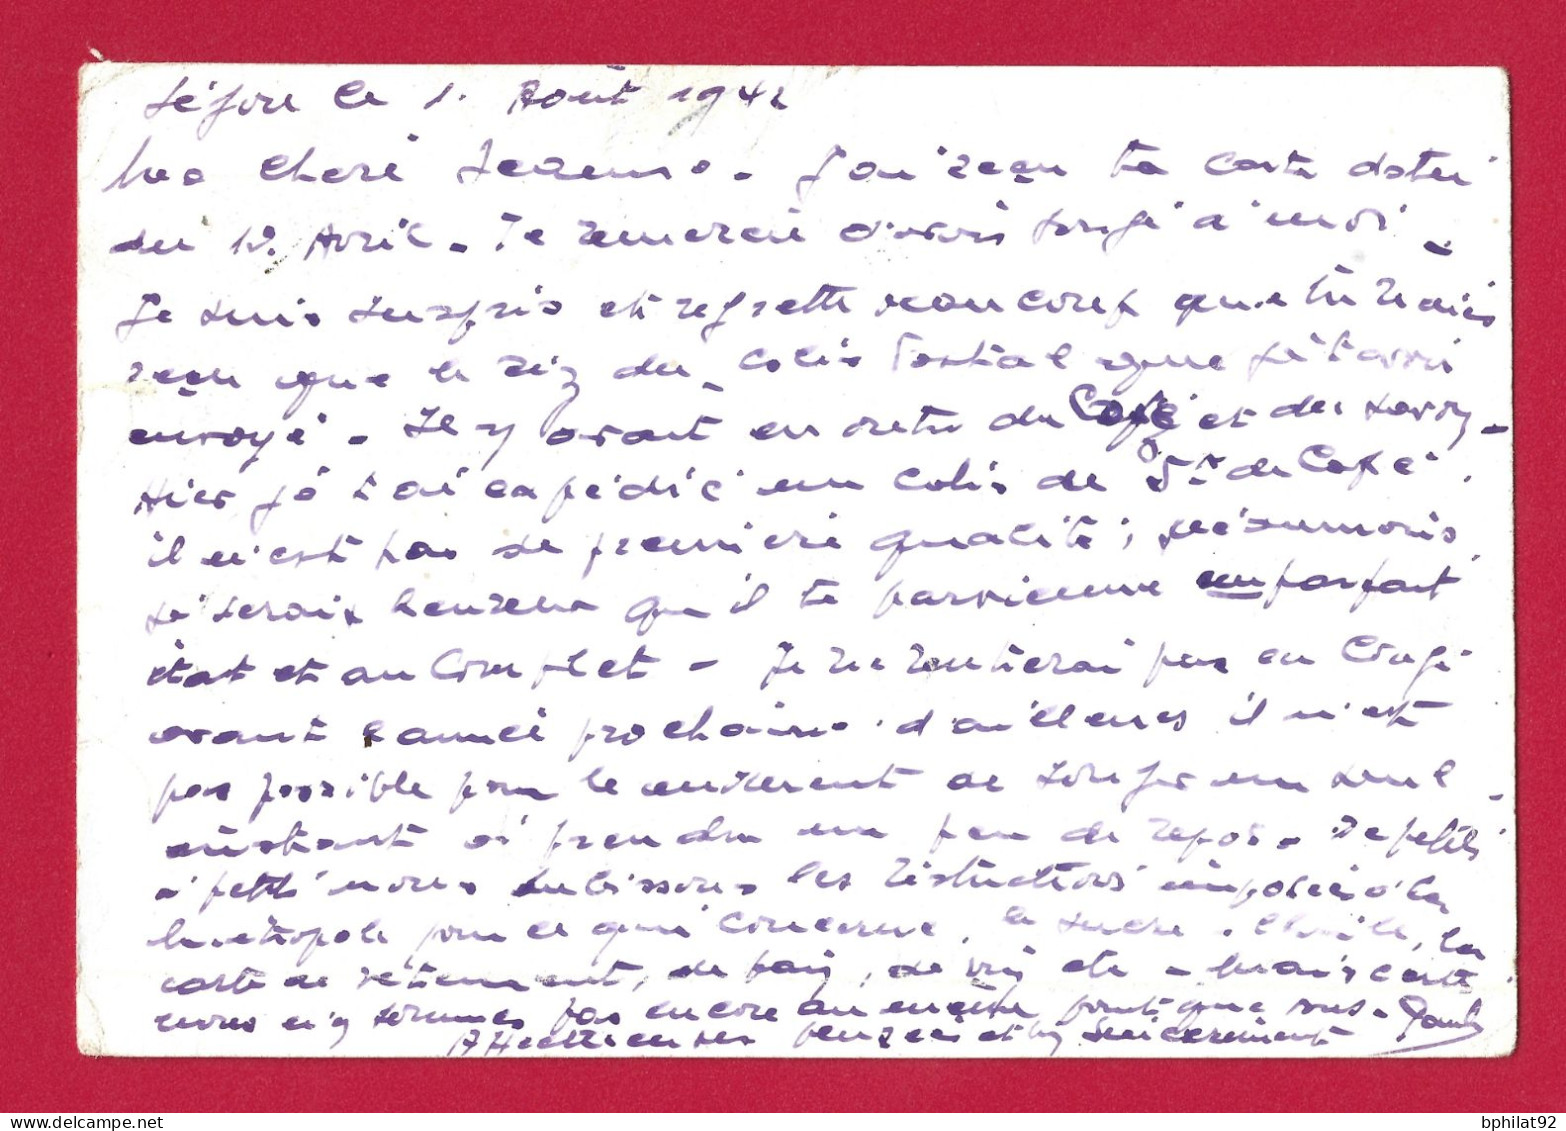 le 1. Août 1942
Ma chère J'ai reçu ta carte datée
du 12. Avril - Te remercie d'avoir songé à moi -
Je suis surpris et regrette beaucoup que tu n'aies
reçu que le riz du Colis Postal que je t'avais
envoyé - Il y avait en outre du Café et du savon -
Hier je t'ai expédié un colis de 5 K de Café.
il n'est pas de première qualité; néanmoins
je serais heureux qu'il te parvienne en parfait
état et au complet - Je ne rentrerai pas en Congé
avant l'année prochaine. d'ailleurs il n'est
pas possible pour le moment de songer un seul
instant à prendre un peu de repos. De petits
à petits nous subissons les restrictions imposées à la
métropole pour ce qui concerne, le sucre. l'huile, la
carte de vêtement, de pain, de vin etc - Mais
nous n'y sommes pas encore au même point que vous -
Affectueuses pensées et bien sincèrement
bphilat92